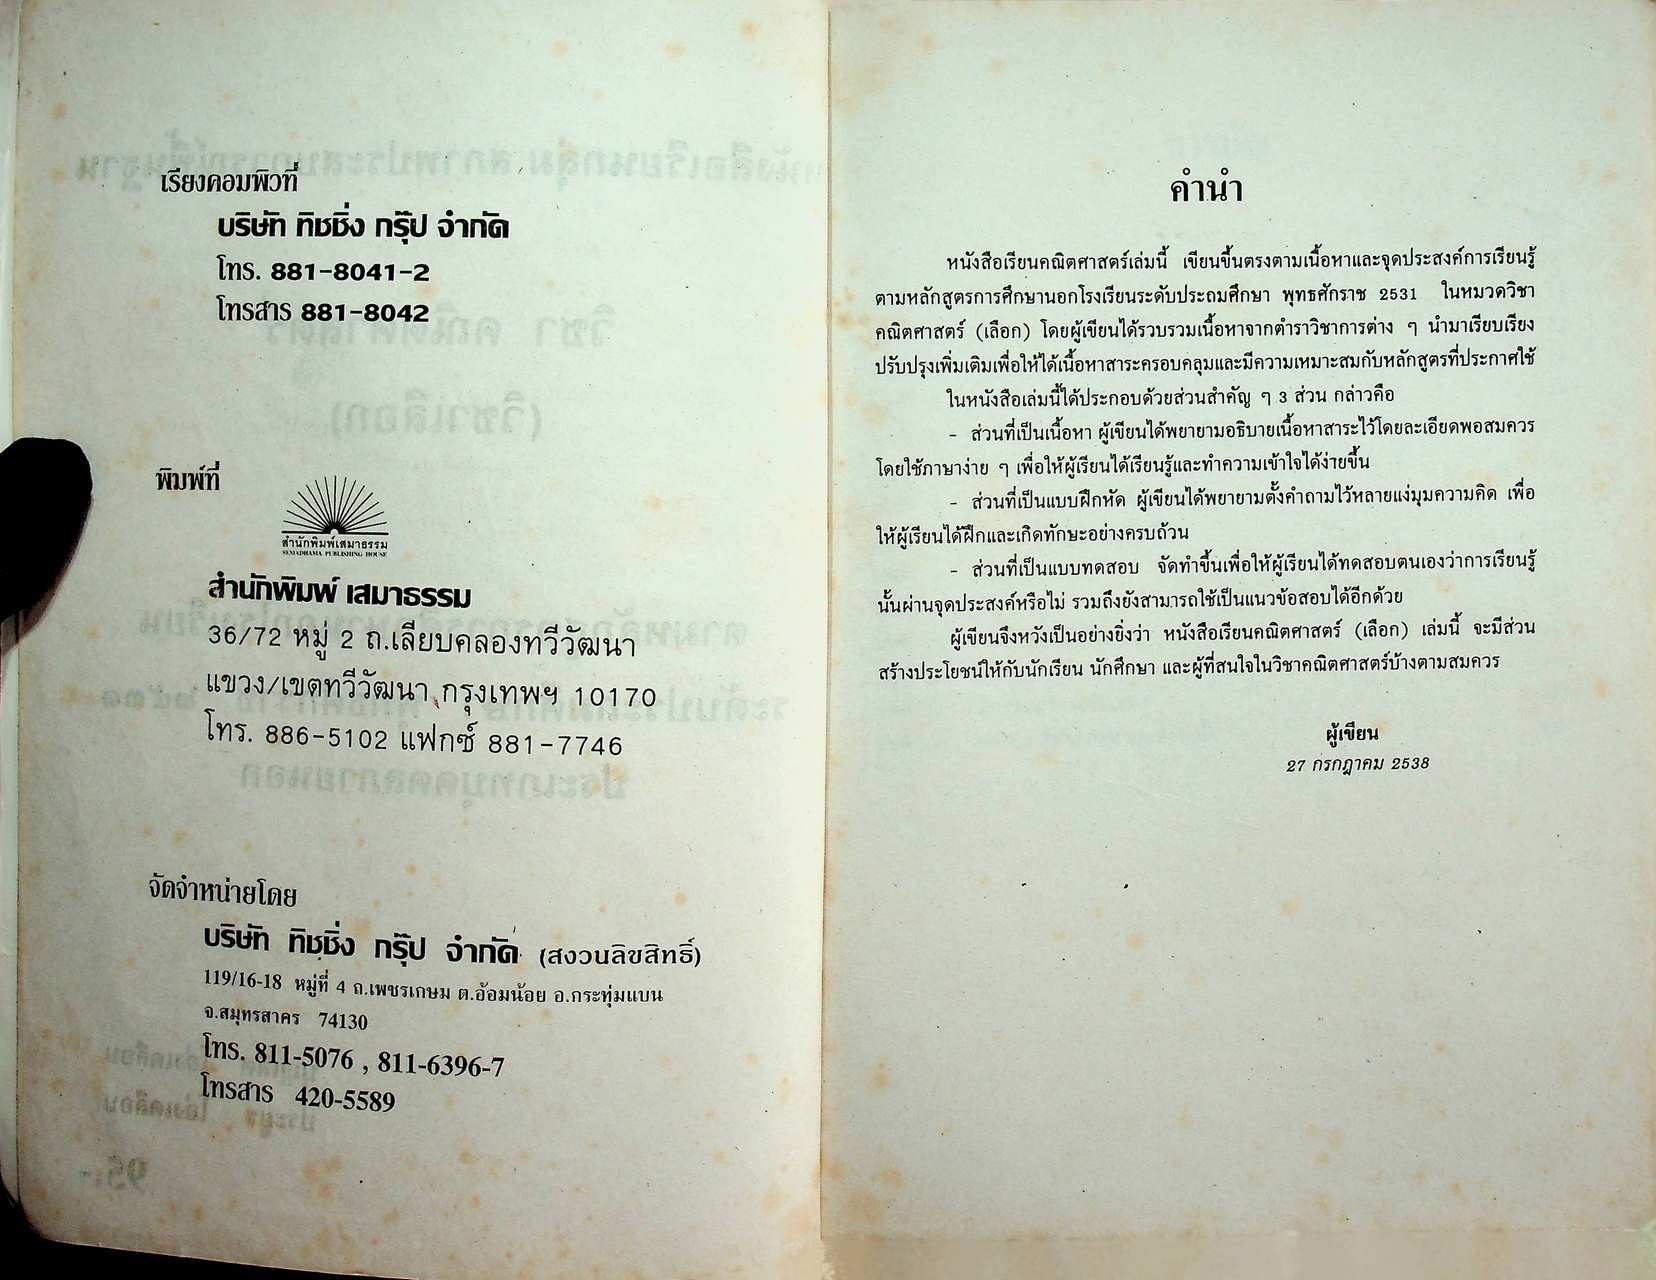 เรียงคอมพิวที่
บริษัท ทิชชิ่ง กรุ๊ป จำกัด
โทร. 881-8041-2
โทรสาร 881-8042
พิมพ์ที่
สำนักพิมพ์เสมาธรรม
SEMADHAMA PUBLISHING HOUSE
สำนักพิมพ์ เสมาธรรม
36/72 หมู่ 2 ถ.เลียบคลองทวีวัฒนา
แขวง/เขตทวีวัฒนา กรุงเทพฯ 10170
โทร. 886-5102 แฟกซ์ 881-7746
จัดจำหน่ายโดย
บริษัท ทิชชิ่ง กรุ๊ป จำกัด (สงวนลิขสิทธิ์)
119/16-18 หมู่ที่ 4 ถ.เพชรเกษม ต.อ้อมน้อย อ.กระทุ่มแบน
จ.สมุทรสาคร 74130
โทร. 811-5076 , 811-6396-7
โทรสาร 420-5589
คำนำ
หนังสือเรียนคณิตศาสตร์เล่มนี้ เขียนขึ้นตรงตามเนื้อหาและจุดประสงค์การเรียนรู้
ตามหลักสูตรการศึกษานอกโรงเรียนระดับประถมศึกษา พุทธศักราช 2531 ในหมวดวิชา
คณิตศาสตร์ (เลือก) โดยผู้เขียนได้รวบรวมเนื้อหาจากตำราวิชาการต่าง ๆ นำมาเรียบเรียง
ปรับปรุงเพิ่มเติมเพื่อให้ได้เนื้อหาสาระครอบคลุมและมีความเหมาะสมกับหลักสูตรที่ประกาศใช้
ในหนังสือเล่มนี้ได้ประกอบด้วยส่วนสำคัญ ๆ 3 ส่วน กล่าวคือ
- ส่วนที่เป็นเนื้อหา ผู้เขียนได้พยายามอธิบายเนื้อหาสาระไว้โดยละเอียดพอสมควร
โดยใช้ภาษาง่าย ๆ เพื่อให้ผู้เรียนได้เรียนรู้และทำความเข้าใจได้ง่ายขึ้น
- ส่วนที่เป็นแบบฝึกหัด ผู้เขียนได้พยายามตั้งคำถามไว้หลายแง่มุมความคิด เพื่อ
ให้ผู้เรียนได้ฝึกและเกิดทักษะอย่างครบถ้วน
- ส่วนที่เป็นแบบทดสอบ จัดทำขึ้นเพื่อให้ผู้เรียนได้ทดสอบตนเองว่าการเรียนรู้
นั้นผ่านจุดประสงค์หรือไม่ รวมถึงยังสามารถใช้เป็นแนวข้อสอบได้อีกด้วย
ผู้เขียนจึงหวังเป็นอย่างยิ่งว่า หนังสือเรียนคณิตศาสตร์ (เลือก) เล่มนี้ จะมีส่วน
สร้างประโยชน์ให้กับนักเรียน นักศึกษา และผู้ที่สนใจในวิชาคณิตศาสตร์บ้างตามสมควร
ผู้เขียน
27 กรกฎาคม 2538